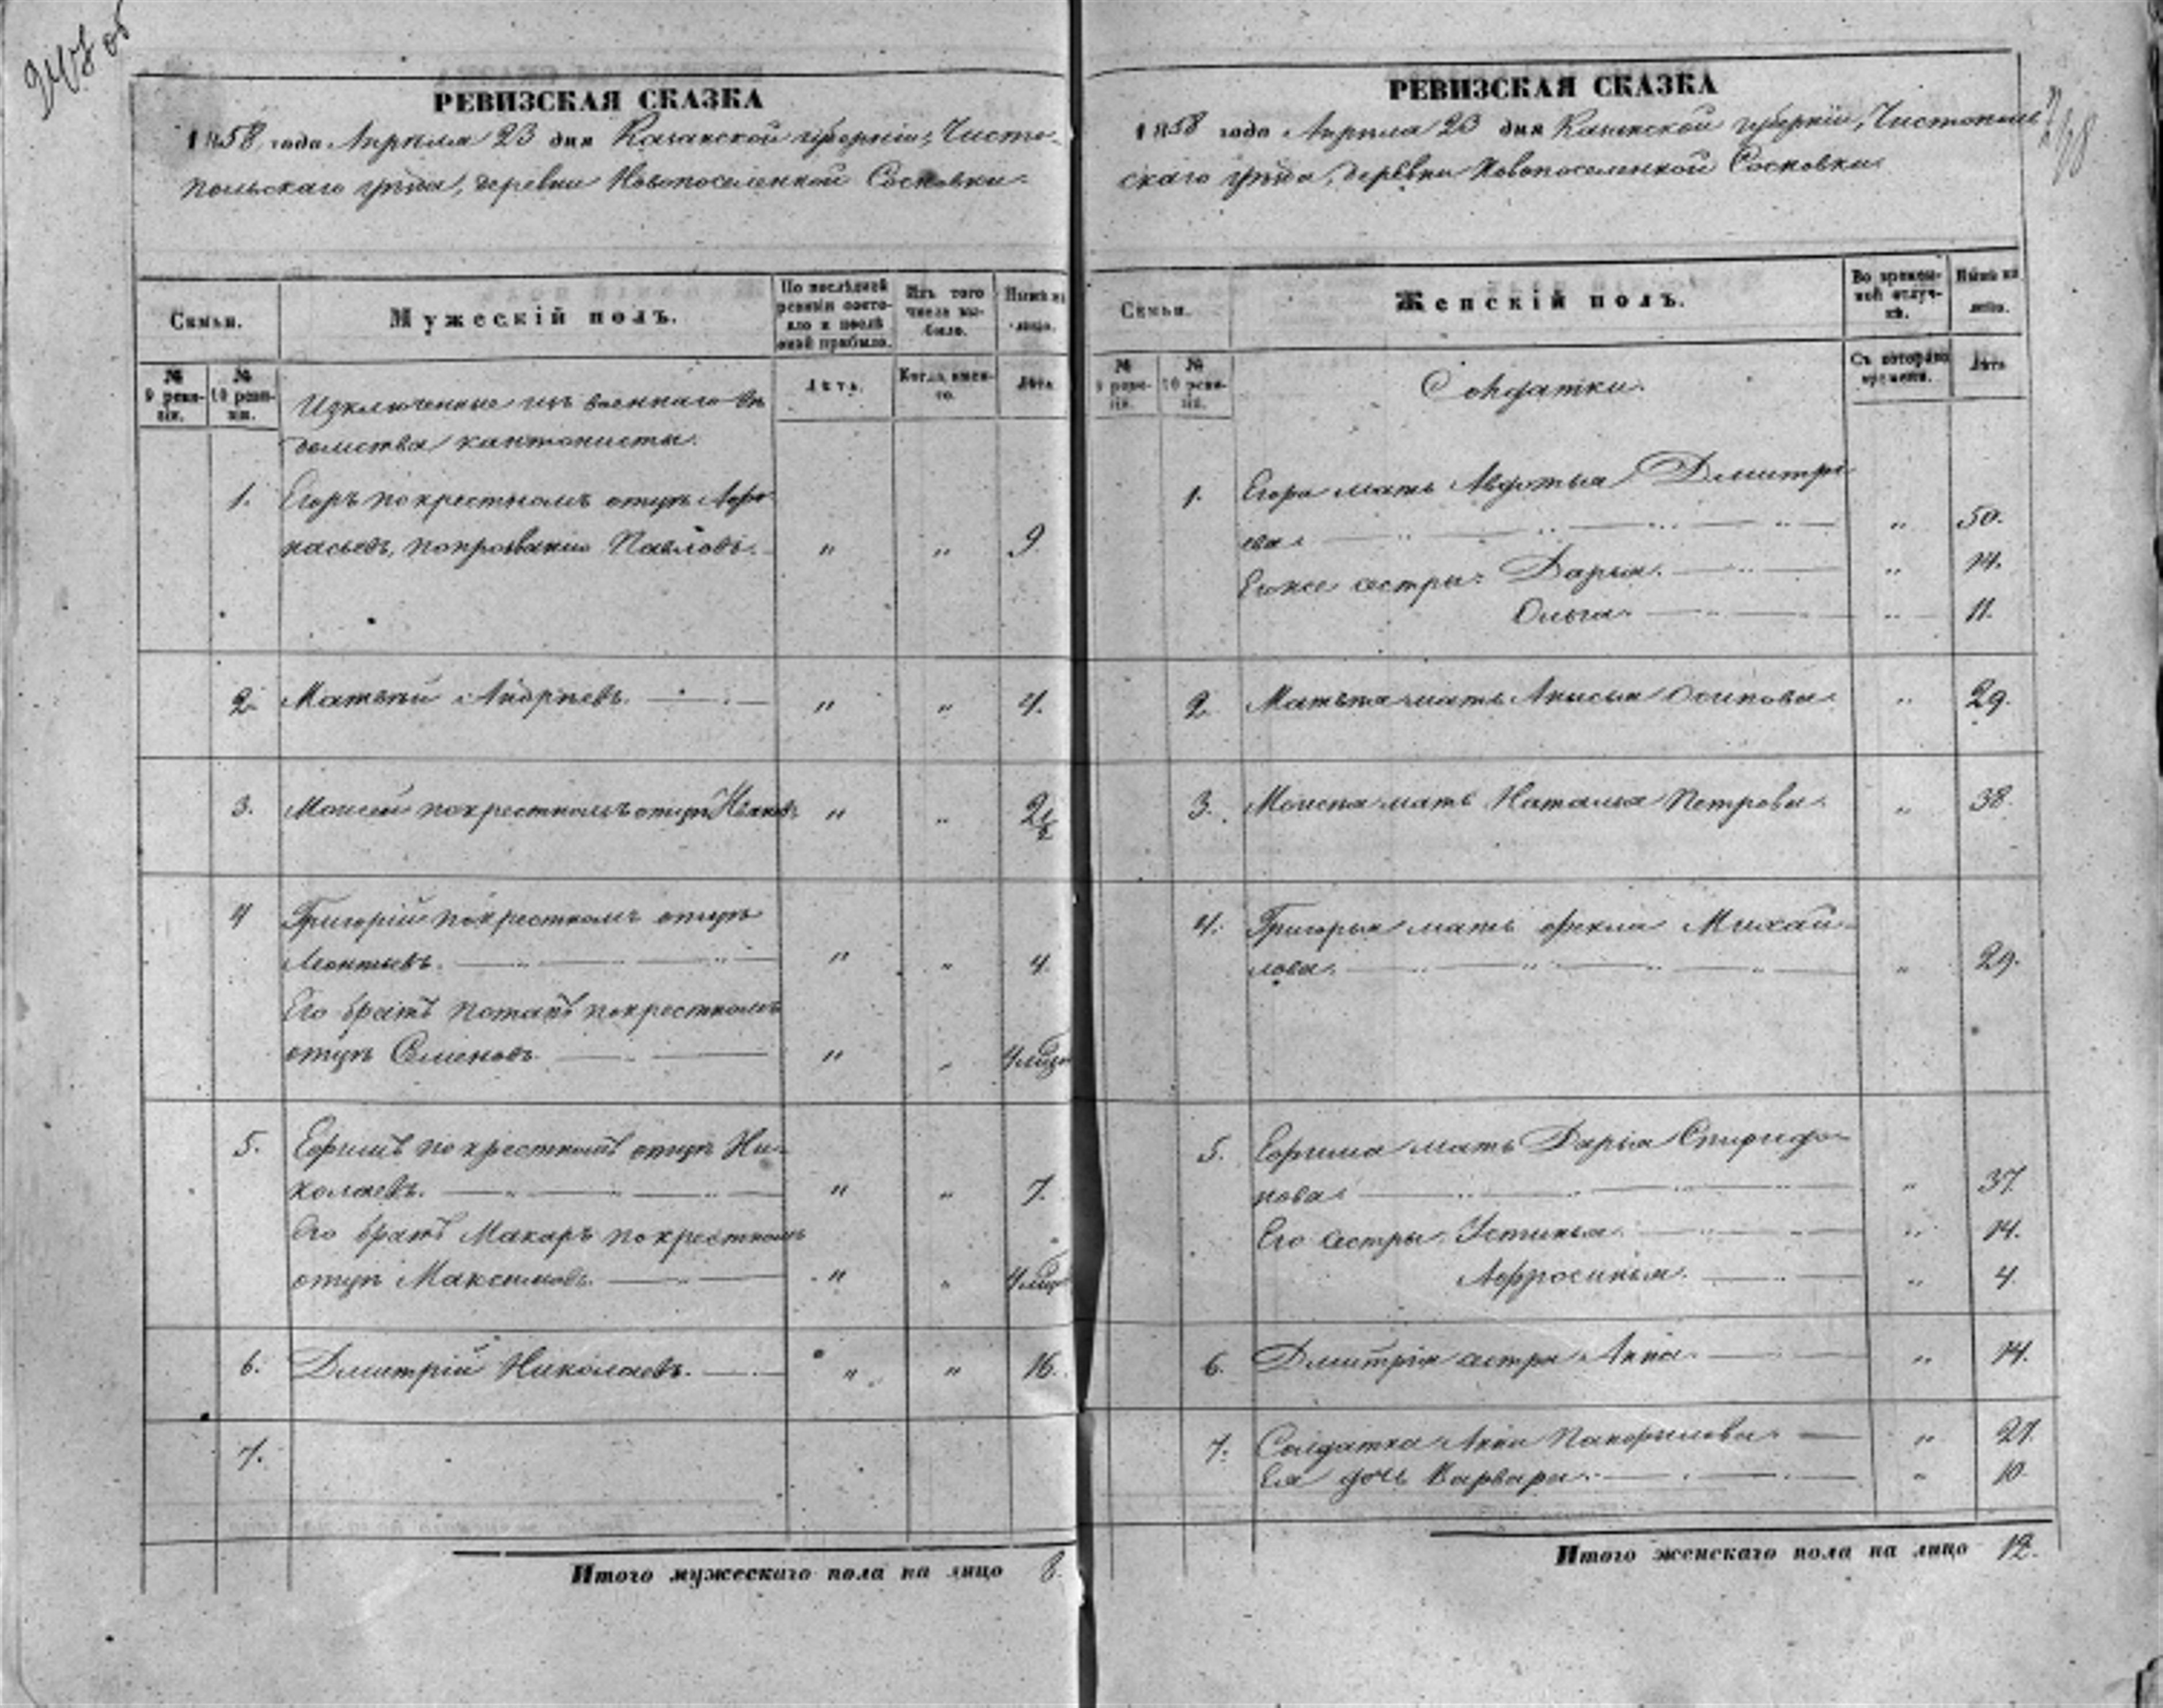 247 об
РЕВИЗСКАЯ СКАЗКА
1858 года Апреля 23 дня Казанской губерніи, Чисто-
польскаго уѣзда, деревни Новопоселенной Сосновки
Семьи.
Мужескій полъ.
По послѣдней ревизіи состояло и послѣ оной прибыло.
Изъ того числа выбыло.
Нынѣ на лицо.
№ 9 ревизіи.
№ 10 ревизіи.
Лѣтъ.
Когда именно.
Лѣта
Изключенные изъ военнаго вѣ
домства кантонисты.
1. Егоръ по крестномъ отцѣ Афо
насьевъ, по прозванію Павловъ. " " 9.
2. Матвѣй Андрѣевъ. " " 4.
3. Моисей по крестномъ отцѣ Ивановъ " " 2 1/2
4 Григорій по крестномъ отцѣ
Леонтьевъ. " " 4.
Его братъ Потапъ по крестномъ
отцѣ Семеновъ " "
5. Ефимъ по крестномъ отцѣ Ни-
колаевъ. " " 7.
Его братъ Макаръ по крестномъ
отцѣ Максимовъ. " "
6. Дмитрій Николаевъ. " " 16.
7.
Итого мужескаго пола на лицо 8.
РЕВИЗСКАЯ СКАЗКА
1858 года Апреля 23 дня Казанской губерніи, Чистополь
скаго уѣзда, деревни Новопоселенной Сосновки
Семьи.
Женскій полъ.
Во временной отлучкѣ.
Нынѣ на лицо.
№ 9 ревизіи.
№ 10 ревизіи.
Съ котораго времени.
Лѣта
Солдатки.
1. Егора мать Авдотья Дмитрі
ева " 50.
Его же сестры: Дарья. " 14.
Ольга " 11.
2. Матвѣя мать Анисья Осипова " 29.
3. Моисея мать Наталья Петрова " 38.
4. Григорья мать Фекла Михай-
лова. " 29.
5. Ефима мать Дарья Спиридо-
нова " 37.
Его сестры Устинья. " 14.
Афросинья. " 4.
6. Дмитрія сестра Анна. " 14.
7. Солдатка Анна Панфилова. " 27.
Ея дочь Варвара. " 10.
Итого женскаго пола на лицо 12.